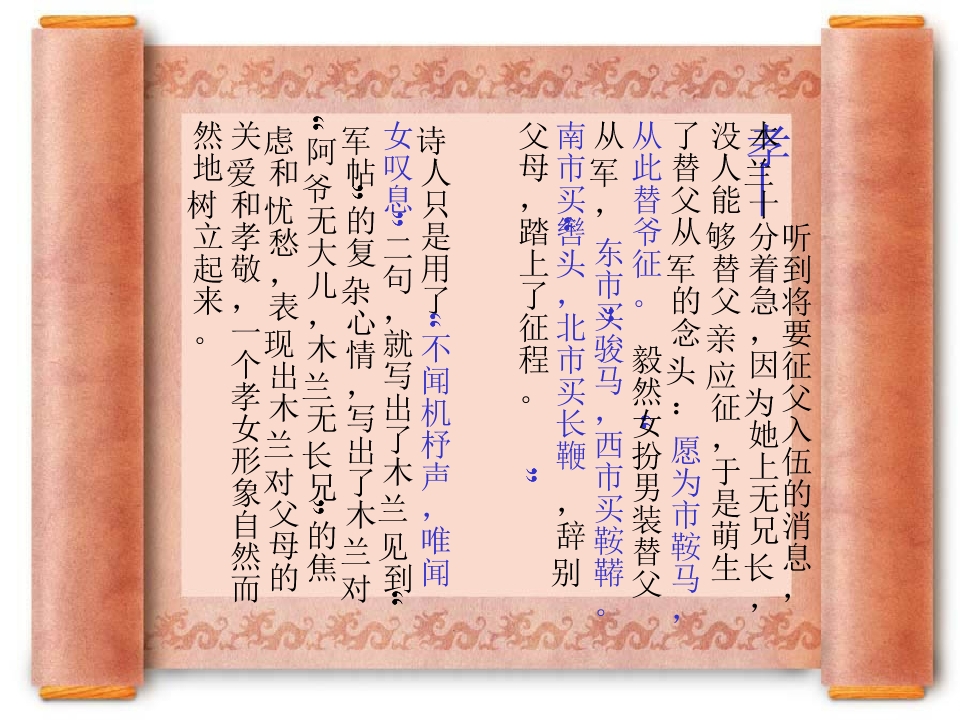 孝——
听到将要征父入伍的消息，
木兰十分着急，因为她上无兄长，
没人能够替父亲应征，于是萌生
了替父从军的念头：愿为市鞍马，
从此替爷征。毅然“女扮男装替父
从军，东市买”骏马，西市买鞍鞯。
南市买“辔头，北市买长鞭，辞别
父母，踏上了征程。”
诗人只是用了“不闻机杼声，唯闻
女叹息”二句，就写出了木兰见到“
军帖”的复杂心情，写出了木兰对
“阿爷无大儿，木兰无长兄”的焦
虑和忧愁，表现出木兰对父母的
关爱和孝敬，一个孝女形象自然而
然地树立起来。